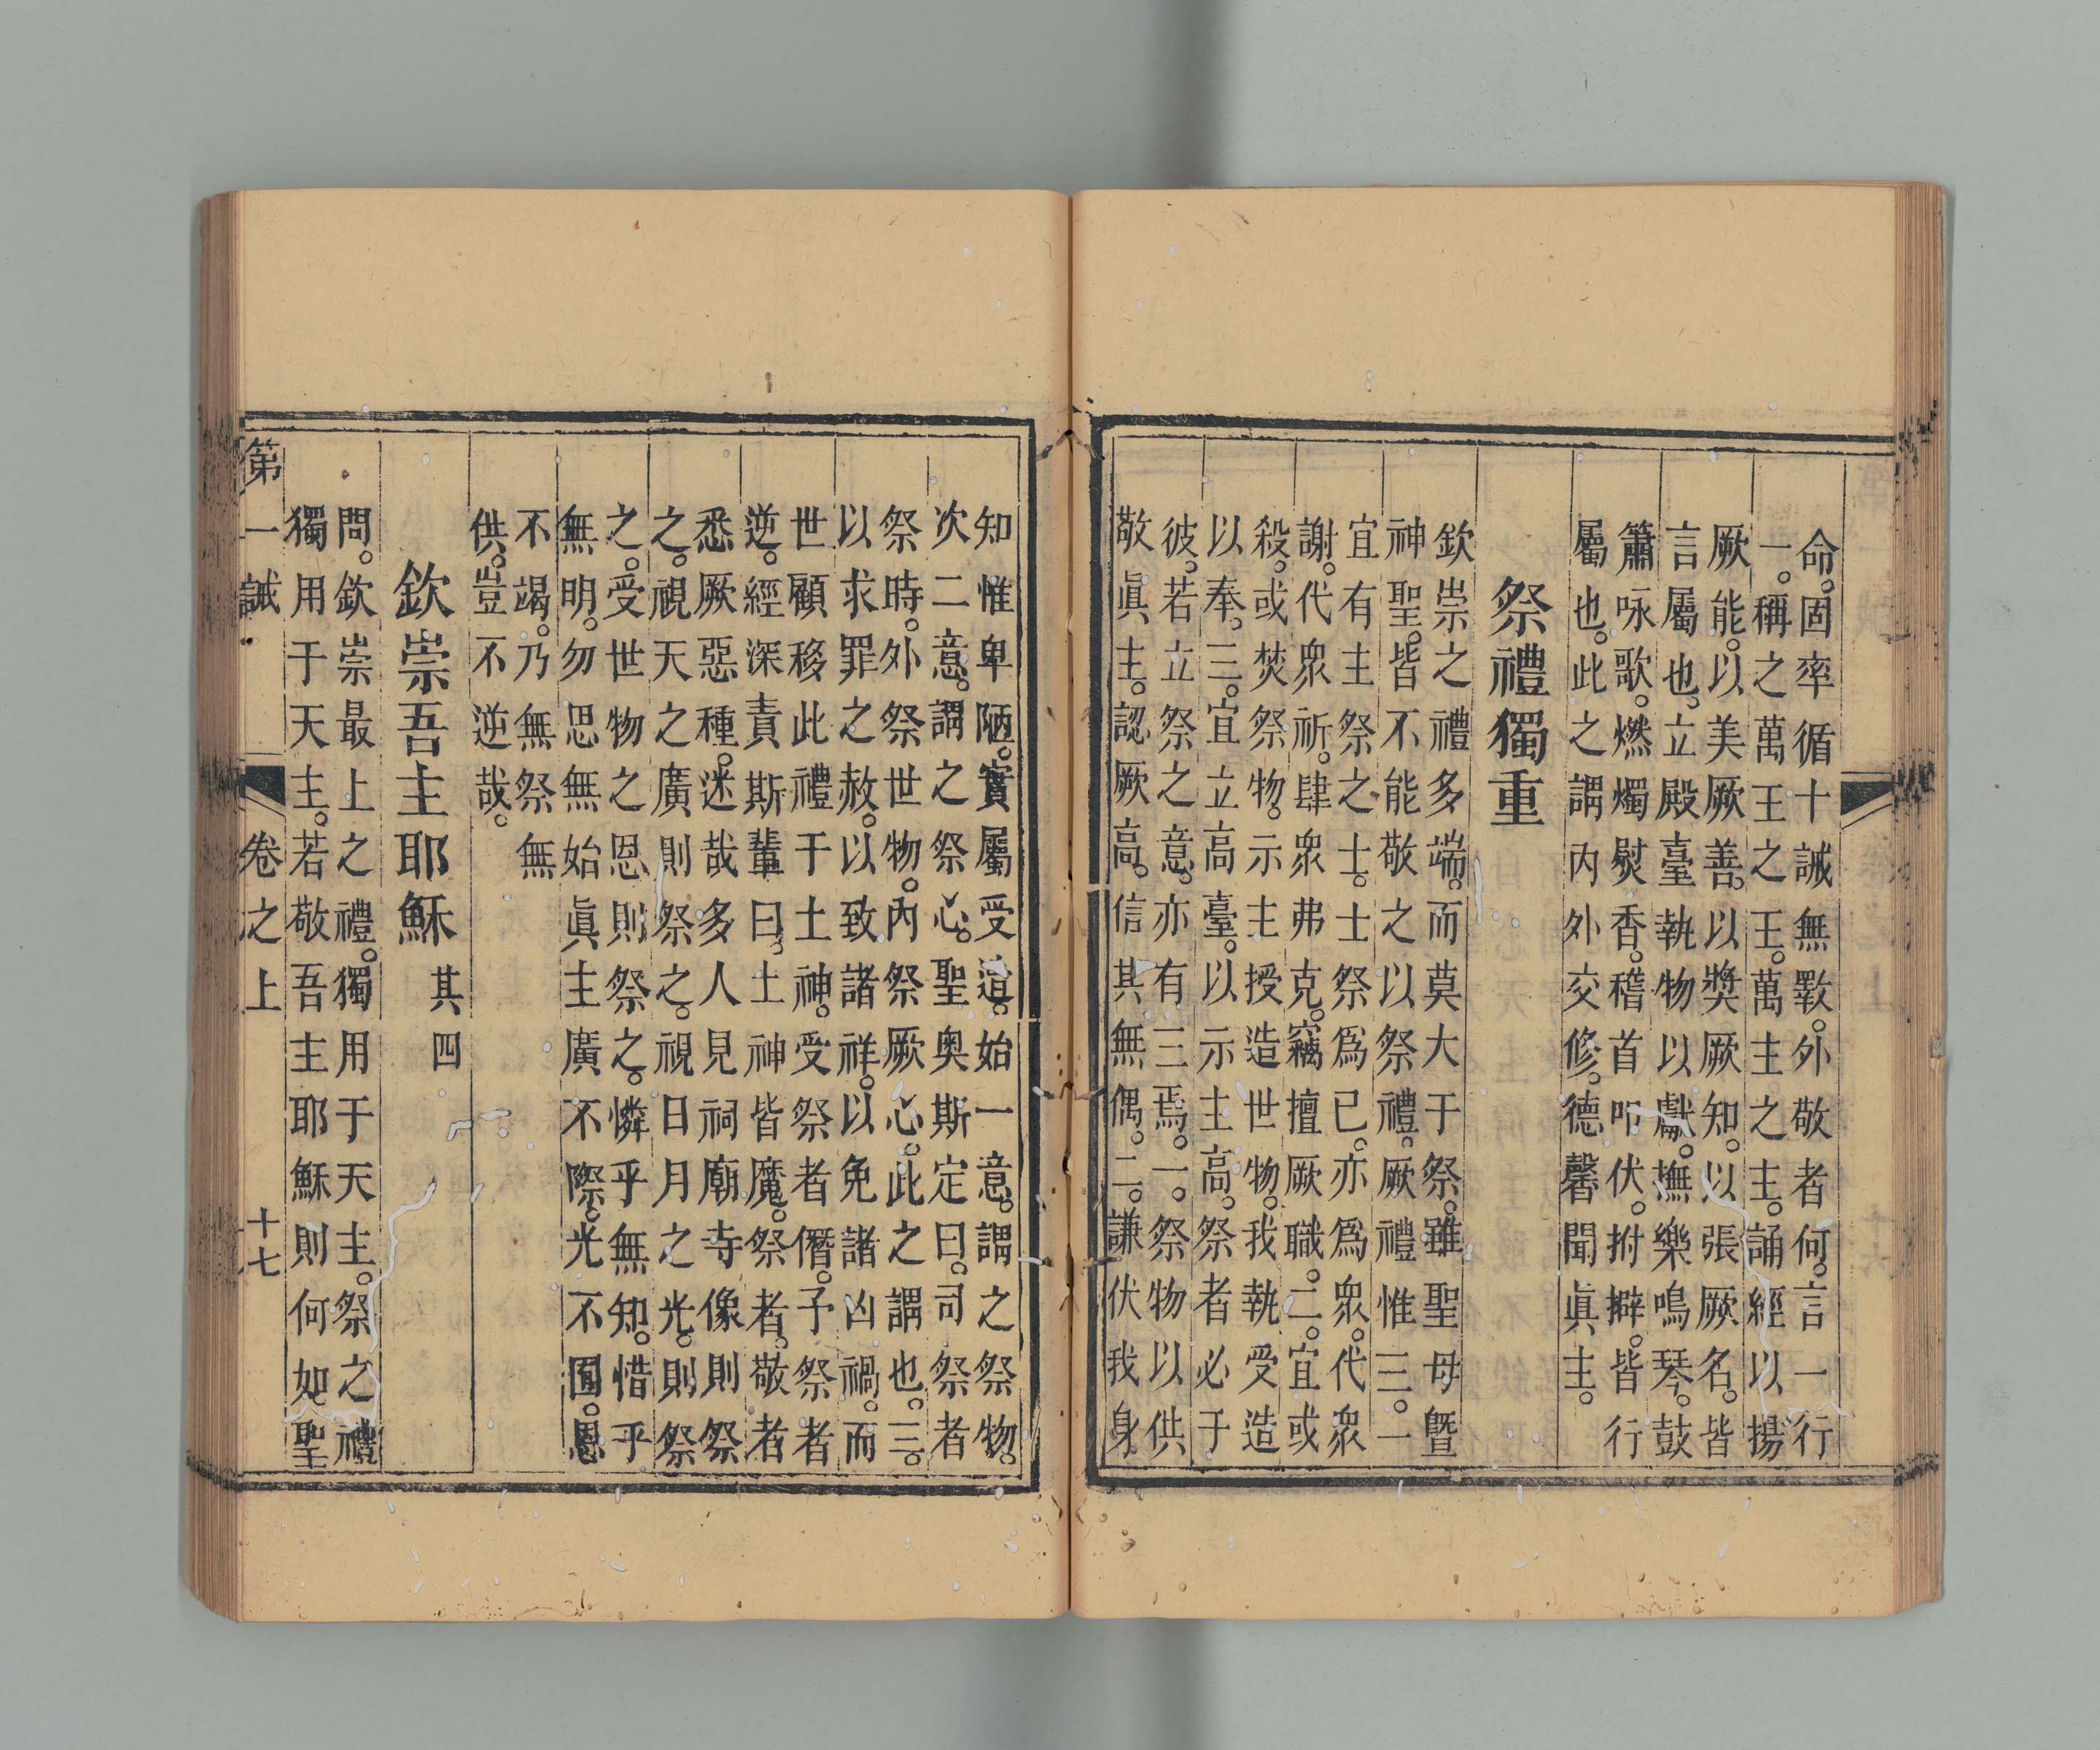 命。固率循十誡無斁。外敬者何。言一行
一。稱之萬王之王。萬主之主。誦經以揚
厥能。以美厥善。以獎厥知。以張厥名。皆
言屬也。立殿臺執物以獻。撫樂鳴琴。鼓
簫咏歌。燃燭熨香。稽首叩伏。拊擗。皆行
屬也。此之謂內外交修。德馨聞眞主。
祭禮獨重
欽崇之禮多端。而莫大于祭。雖聖母曁
神聖。皆不能敬之以祭禮。厥禮惟三。一
宜有主祭之士。士祭爲已。亦爲眾。代眾
謝。代眾祈。肆眾弗克。竊擅厥職。二。宜或
殺。或焚祭物。示主授造世物。我執受造
以奉。三。宜立高臺。以示主高。祭者必于
彼。若立祭之意。亦有三焉。一。祭物以供
敬眞主。認厥高。信其無偶。二。謙伏我身
知惟卑陋。實屬受造。始一意。謂之祭物。
次二意。謂之祭心。聖奧斯定曰。司祭者
祭時。外祭世物。內祭厥心。此之謂也。三。
以求罪之赦。以致諸祥。以免諸凶禍。而
世顧移此禮于土神。受祭者僭。予祭者
逆。經深責斯輩曰。土神皆魔。祭者。敬者
悉厥惡種。迷哉多人見祠廟寺像則祭
之。視天之廣則祭之。視日月之光。則祭
之。受世物之恩則祭之。憐乎無知。惜乎
無明。勿思無始眞主廣不際。光不圍。恩
不竭。乃無祭無
供。豈不逆哉。
欽崇吾主耶穌 其四
問。欽崇最上之禮。獨用于天主。祭之禮
獨用于天主。若敬吾主耶穌則何如聖
第一誡 卷之上 十七